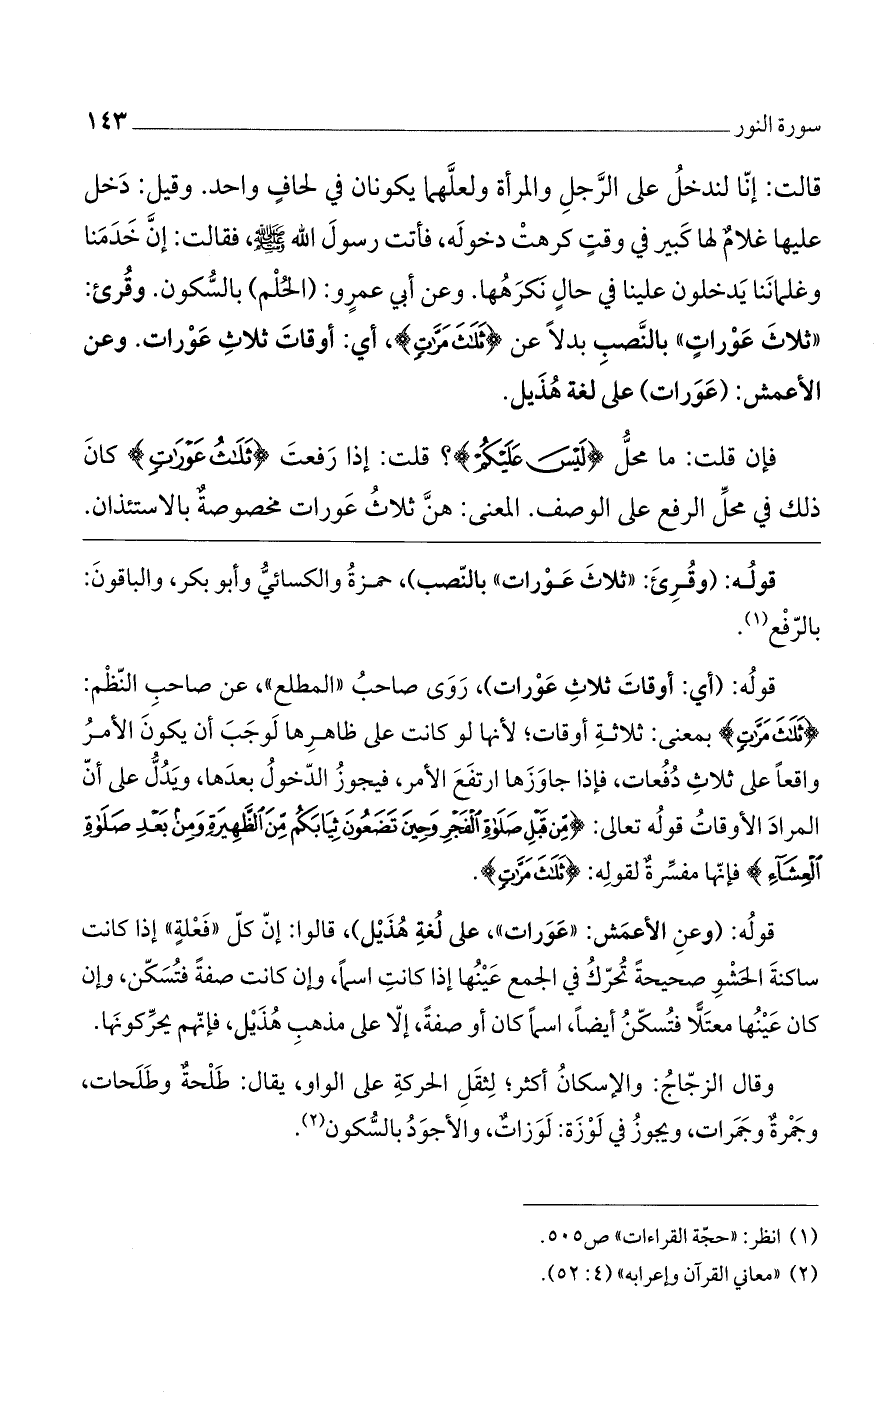 سورة النور ١٤٣
قالت: إنّا لندخلُ على الرَّجلِ والمرأة ولعلَّهما يكونان في لحافٍ واحد. وقيل: دَخل
عليها غلامٌ لها كَبير في وقتٍ كرهتْ دخولَه، فأتت رسولَ الله ﷺ، فقالت: إنَّ خَدَمَنا
وغلمانَنا يَدخلون علينا في حالٍ نَكرَهُها. وعن أبي عمرٍو: (الحُلْم) بالسُّكون. وقُرِئ:
«ثلاثَ عَوْراتٍ» بالنَّصبِ بدلاً عن ﴿ثَلَٰثَ مَرَّٰتٍ﴾، أي: أوقاتَ ثلاثِ عَوْرات. وعن
الأعمش: (عَوَرات) على لغة هُذَيل.
فإن قلت: ما محلُّ ﴿لَيْسَ عَلَيْكُمْ﴾؟ قلت: إذا رَفعتَ ﴿ثَلَٰثُ عَوْرَٰتٍ﴾ كانَ
ذلك في محلِّ الرفع على الوصف. المعنى: هنَّ ثلاثُ عَورات مخصوصةٌ بالاستئذان.
قولُه: (وقُرِئَ: «ثلاثَ عَوْرات» بالنّصب)، حمزةُ والكسائيُّ وأبو بكر، والباقونَ:
بالرّفْع(١).
قولُه: (أي: أوقاتَ ثلاثِ عَوْرات)، رَوَى صاحبُ «المطلع»، عن صاحبِ النّظْم:
﴿ثَلَٰثَ مَرَّٰتٍ﴾ بمعنى: ثلاثةِ أوقات؛ لأنها لو كانت على ظاهرِها لَوجَبَ أن يكونَ الأمرُ
واقعاً على ثلاثِ دُفُعات، فإذا جاوَزَها ارتفَعَ الأمر، فيجوزُ الدّخولُ بعدَها، ويَدُلُّ على أنّ
المرادَ الأوقاتُ قولُه تعالى: ﴿مِّن قَبْلِ صَلَوٰةِ ٱلْفَجْرِ وَحِينَ تَضَعُونَ ثِيَابَكُم مِّنَ ٱلظَّهِيرَةِ وَمِنۢ بَعْدِ صَلَوٰةِ
ٱلْعِشَآءِ﴾ فإنّها مفسِّرةٌ لقولِه: ﴿ثَلَٰثَ مَرَّٰتٍ﴾.
قولُه: (وعنِ الأعمَش: «عَوَرات»، على لُغةِ هُذَيْل)، قالوا: إنّ كلّ «فَعْلةٍ» إذا كانت
ساكنةَ الحَشْوِ صحيحةً تُحرّكُ في الجمع عَيْنُها إذا كانتِ اسماً، وإن كانت صفةً فتُسَكّن، وإن
كان عَيْنُها معتَلًّا فتُسكّنُ أيضاً، اسماً كان أو صفةً، إلّا على مذهبِ هُذَيْل، فإنّهم يحرِّكونَها.
وقال الزجّاجُ: والإسكانُ أكثر؛ لِثقَلِ الحركةِ على الواو، يقال: طَلْحةٌ وطَلَحات،
وجَمْرةٌ وجَمَرات، ويجوزُ في لَوْزَة: لَوَزاتٌ، والأجوَدُ بالسُّكون(٢).
(١) انظر: «حجّة القراءات» ص٥٠٥.
(٢) «معاني القرآن وإعرابه» (٤: ٥٢).